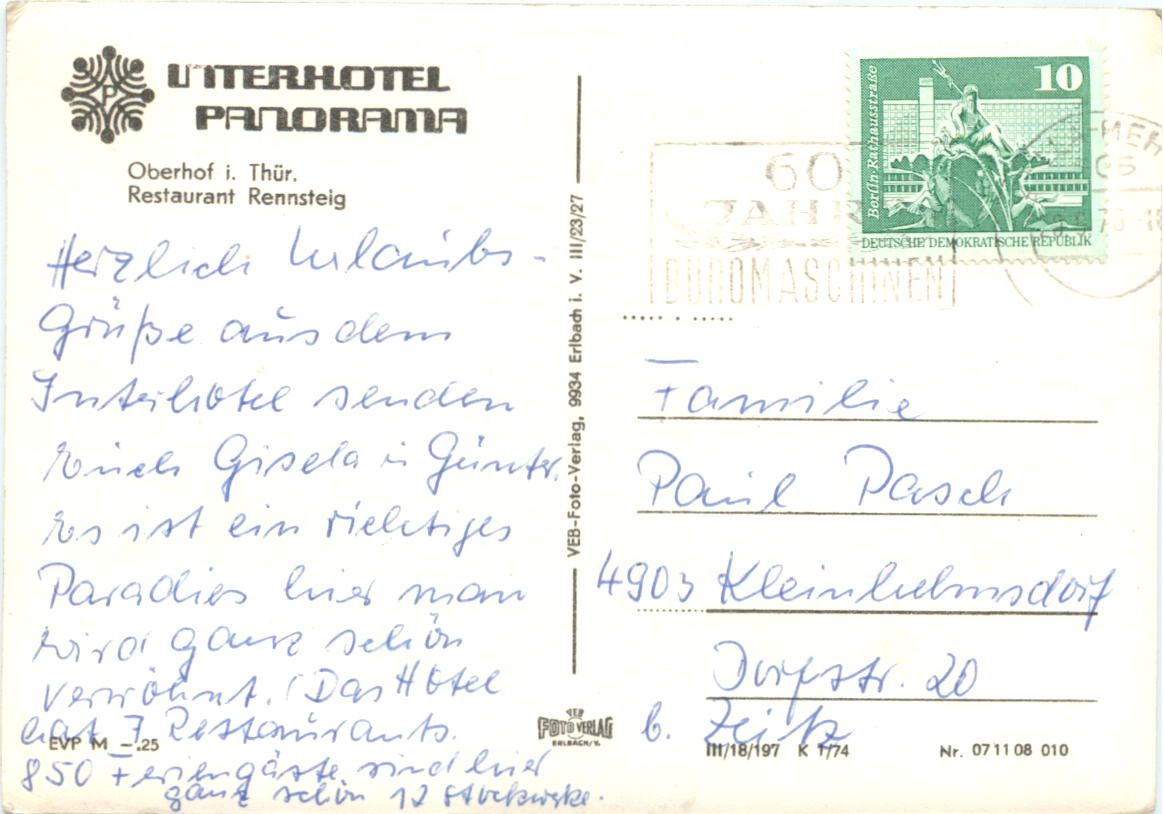 INTERHOTEL
PANORAMA
Oberhof i. Thür.
Restaurant Rennsteig
Herzlich Urlaubs-
Grüße aus dem
Interhotel senden
Euch Gisela u Günter.
Es ist ein richtiges
Paradies hier man
wird ganz schön
verwöhnt. (Das Hotel
hat 7 Restaurants.
850 Feriengäste sind hier
ganz schön 12 Stockwerke.
EVP M –.25
VEB-Foto-Verlag, 9934 Erlbach i. V. III/23/27
VEB
FOTO VERLAG
ERLBACH/V.
10
Berlin-Rathausstraße
DEUTSCHE DEMOKRATISCHE REPUBLIK
60
JAHRE
BÜROMASCHINEN
Familie
Paul Pasch
4903 Kleinhelmsdorf
Dorfstr. 20
b. Zeitz
III/18/197 K 1/74
Nr. 07 11 08 010